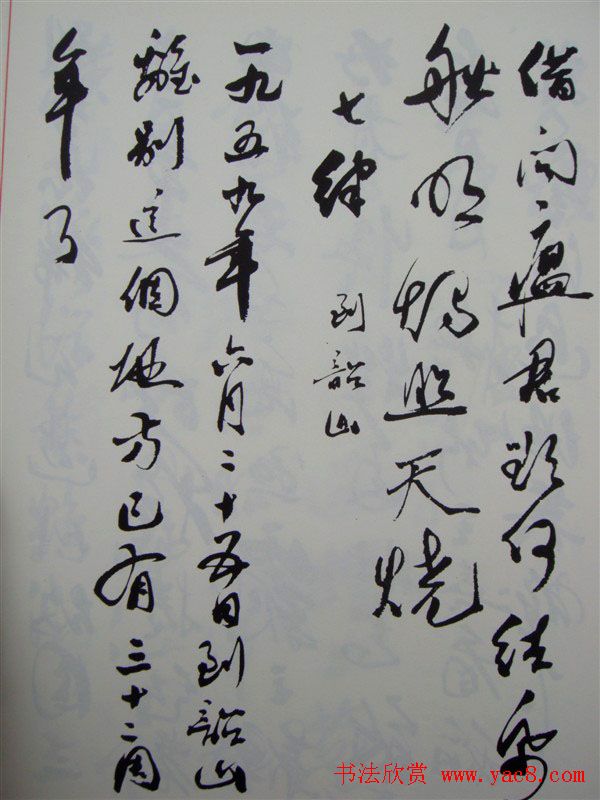 借问瘟君欲何往纸
船明烛照天烧
七律 到韶山
一九五九年六月二十五日到韶山
離别這個地方已有三十二周
年了
书法欣赏 www.yac8.com